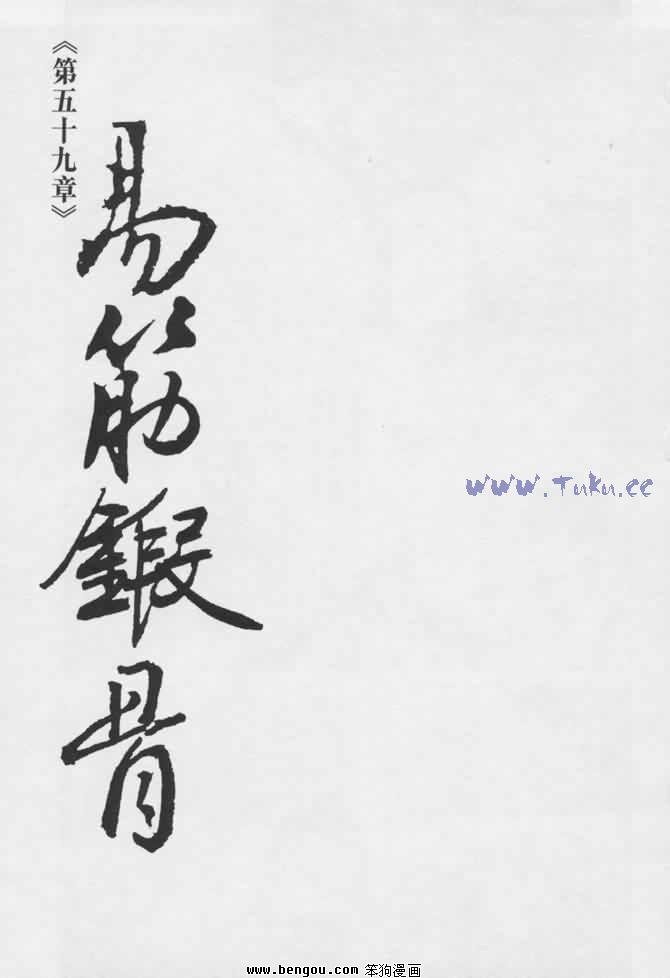 《第五十九章》
易筋鍛骨
www.Tuku.cc
www.bengou.com 笨狗漫画